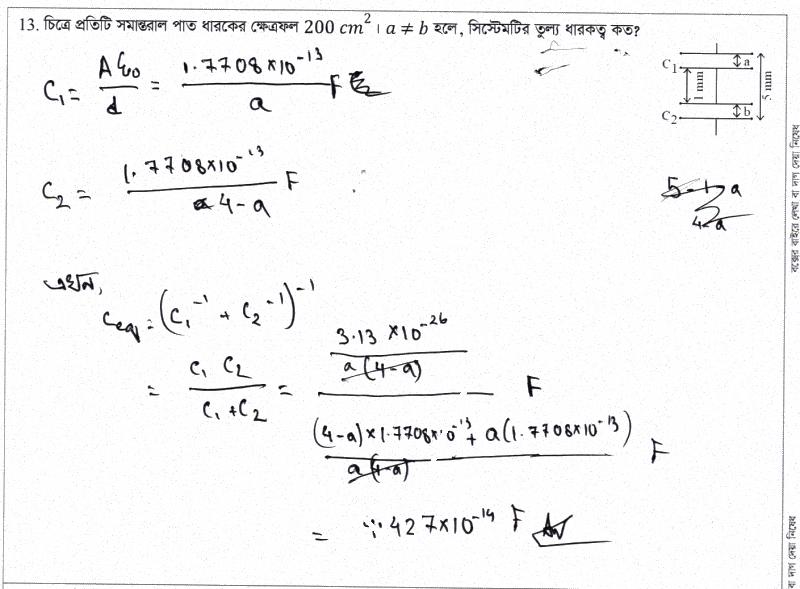 13. চিত্রে প্রতিটি সমান্তরাল পাত ধারকের ক্ষেত্রফল 200 cm²। a ≠ b হলে, সিস্টেমটির তুল্য ধারকত্ব কত?
C₁ a
1 mm
5 mm
C₂ b
C₁ = Aε₀/d = 1.7708×10⁻¹³/a F
C₂ = 1.7708×10⁻¹³/4-a F
5-1-a
4-a
এখন,
Ceq = (C₁⁻¹ + C₂⁻¹)⁻¹
= C₁ C₂/C₁+C₂ = 3.13 ×10⁻²⁶/a(4-a) F
(4-a)×1.7708×10⁻¹³ + a(1.7708×10⁻¹³)/a(4-a) F
= 427×10⁻¹⁴ F Ans
বক্সের বাইরে লেখা বা দাগ দেয়া নিষেধ
বা দাগ দেয়া নিষেধ